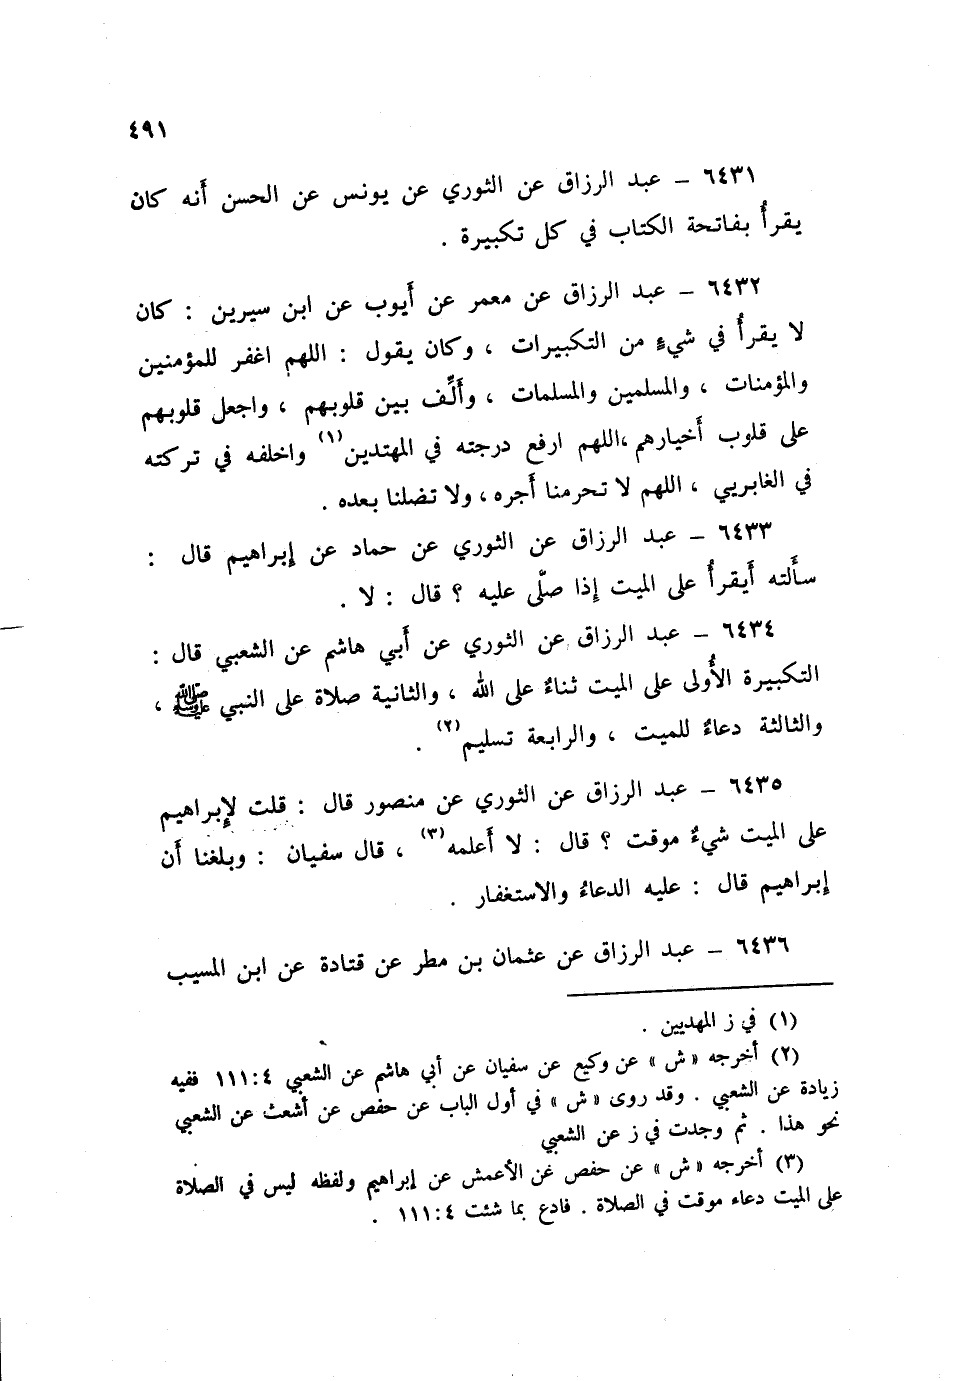 ٤٩١
٦٤٣١ – عبد الرزاق عن الثوري عن يونس عن الحسن أَنه كان
يقرأُ بفاتحة الكتاب في كل تكبيرة .
٦٤٣٢ – عبد الرزاق عن معمر عن أَيوب عن ابن سيرين : كان
لا يقرأُ في شيءٍ من التكبيرات ، وكان يقول : اللهم اغفر للمؤمنين
والمؤمنات ، والمسلمين والمسلمات ، وأَلِّف بين قلوبهم ، واجعل قلوبهم
على قلوب أَخيارهم ،اللهم ارفع درجته في المهتدين(١) واخلفه في تركته
في الغابريي ، اللهم لا تحرمنا أَجره ، ولا تضلنا بعده .
٦٤٣٣ – عبد الرزاق عن الثوري عن حماد عن إبراهيم قال :
سأَلته أَيقرأُ على الميت إذا صلّى عليه ؟ قال : لا .
٦٤٣٤ – عبد الرزاق عن الثوري عن أَبي هاشم عن الشعبي قال :
التكبيرة الأُولى على الميت ثناءٌ على الله ، والثانية صلاة على النبي ﷺ ،
والثالثة دعاءٌ للميت ، والرابعة تسليم(٢) .
٦٤٣٥ – عبد الرزاق عن الثوري عن منصور قال : قلت لإبراهيم
على الميت شيءٌ موقت ؟ قال : لا أَعلمه(٣) ، قال سفيان : وبلغنا أَن
إبراهيم قال : عليه الدعاءُ والاستغفار .
٦٤٣٦ – عبد الرزاق عن عثمان بن مطر عن قتادة عن ابن المسيب
(١) في ز المهديين .
(٢) أخرجه « ش » عن وكيع عن سفيان عن أبي هاشم عن الشعبي ٤:‏١١١ ففيه
زيادة عن الشعبي . وقد روى « ش » في أول الباب عن حفص عن أشعث عن الشعبي
نحو هذا . ثم وجدت في ز عن الشعبي
(٣) أخرجه « ش » عن حفص عن الأعمش عن إبراهيم ولفظه ليس في الصلاة
على الميت دعاء موقت في الصلاة . فادع بما شئت ٤:‏١١١ .